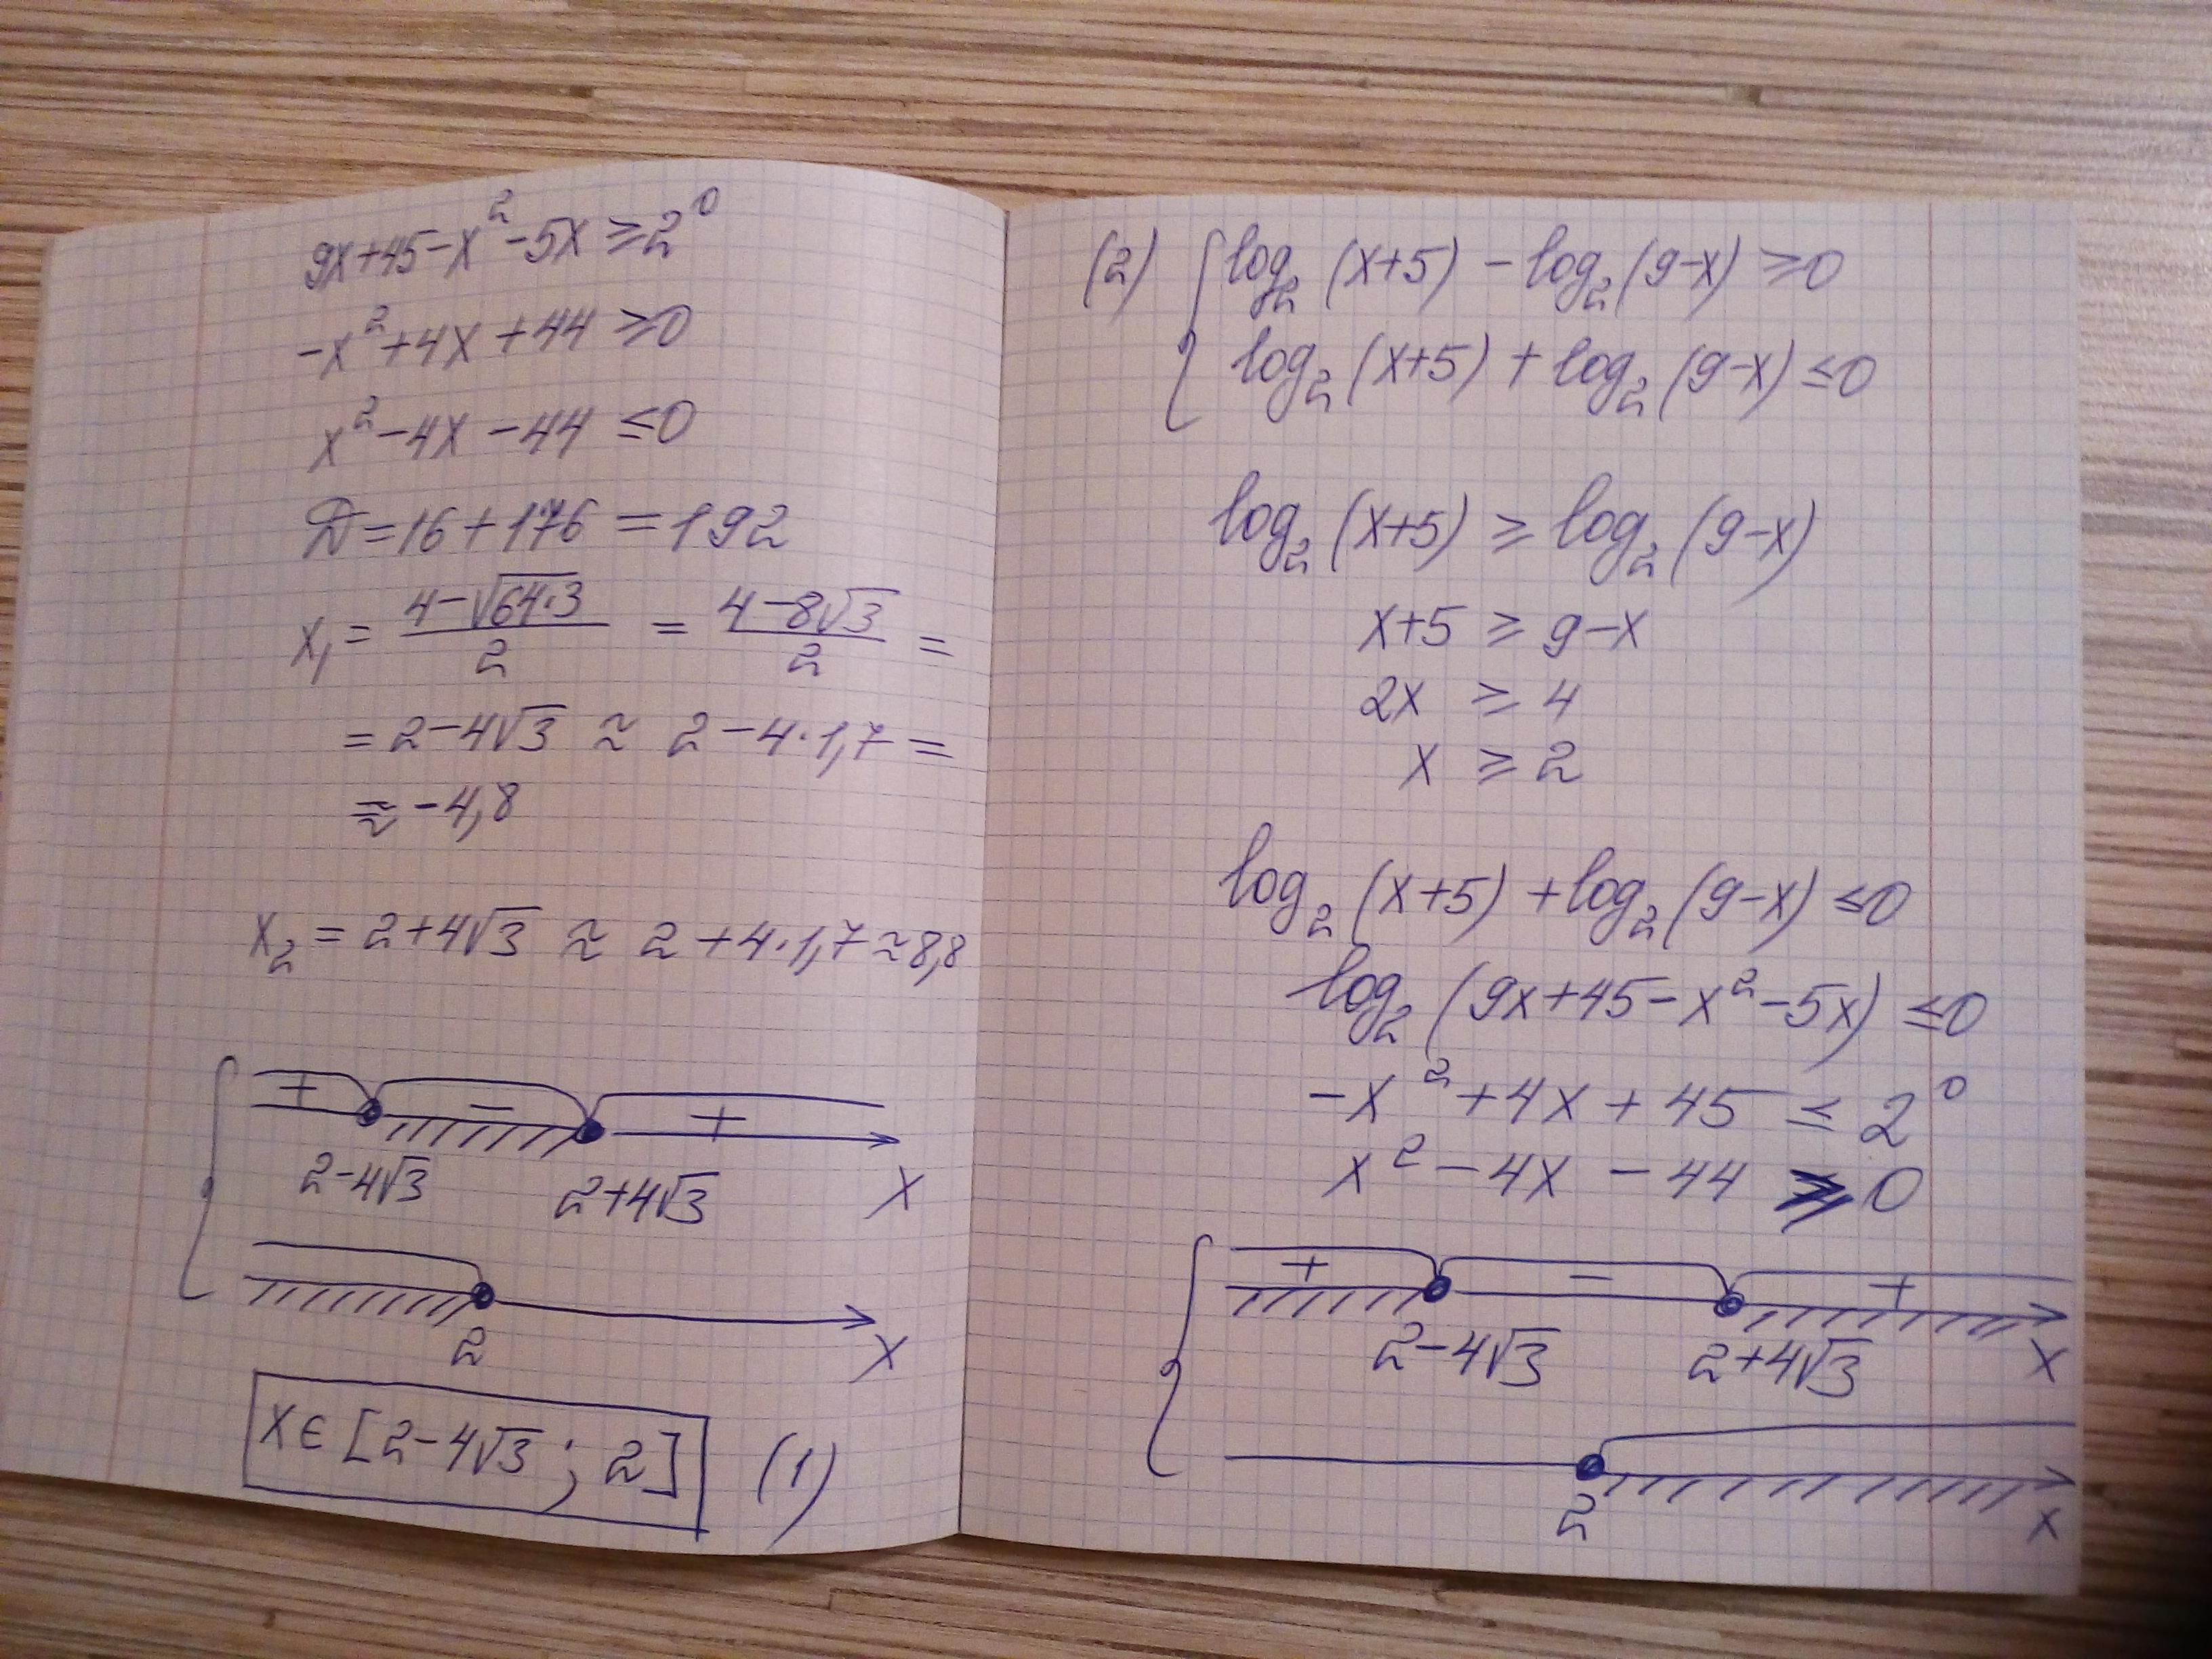 9x+45-x²-5x ≥ 2⁰
-x²+4x+44 ≥ 0
x²-4x-44 ≤ 0
D=16+176=192
x₁ = (4-√(64·3))/2 = (4-8√3)/2 =
= 2-4√3 ≈ 2-4·1,7 =
≈ -4,8
x₂ = 2+4√3 ≈ 2+4·1,7 ≈ 8,8
+ - +
2-4√3 2+4√3 x
2 x
x ∈ [2-4√3 ; 2] (1)
(2) { log₂(x+5) - log₂(9-x) ≥ 0
log₂(x+5) + log₂(9-x) ≤ 0
log₂(x+5) ≥ log₂(9-x)
x+5 ≥ 9-x
2x ≥ 4
x ≥ 2
log₂(x+5) + log₂(9-x) ≤ 0
log₂(9x+45-x²-5x) ≤ 0
-x²+4x+45 ≤ 2⁰
x²-4x-44 ≥ 0
+ - +
2-4√3 2+4√3 x
2 x